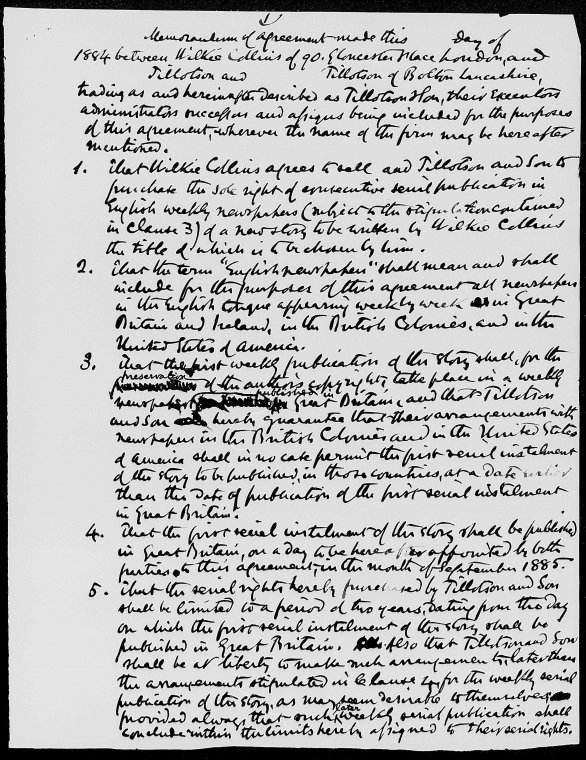 1
Memorandum of agreement made this Day of
1884 between Wilkie Collins of 90. Gloucester Place London, and
Tillotson and Tillotson of Bolton Lancashire,
trading as and hereinafter described as Tillotson & Son, their Executors
administrators successors and assigns being included for the purposes
of this agreement, wherever the name of the firm may be hereafter
mentioned.
1. That Wilkie Collins agrees to sell and Tillotson and Son to
purchase the sole right of consecutive serial publication in
English weekly newspapers (subject to the stipulation contained
in Clause 3) of a new story to be written by Wilkie Collins
the title of which is to be chosen by him.
2. That the term "English newspapers" shall mean and shall
include for the purposes of this agreement all newspapers
in the English tongue appearing weekly in Great
Britain and Ireland, in the British Colonies, and in the
United States of America.
3. That the first weekly publication of the story shall, for the
preservation of the author's copyright, take place in a weekly
newspaper published in Great Britain, and that Tillotson
and Son hereby guarantee that their arrangements with
newspapers in the British Colonies and in the United States
of America shall in no case permit the first serial instalment
of the story to be published, in those countries, at a date earlier
than the date of publication of the first serial instalment
in Great Britain.
4. That the first serial instalment of the story shall be published
in Great Britain, on a day to be hereafter appointed by both
parties to this agreement, in the month of September 1885.
5. That the serial rights hereby purchased by Tillotson and Son
shall be limited to a period of two years, dating from the day
on which the first serial instalment of the story shall be
published in Great Britain. Also that Tillotson and Son
shall be at liberty to make such arrangements, later than
the arrangements stipulated in Clause 4, for the weekly serial
publication of the story, as may seem desirable to themselves
provided always that such later weekly serial publication shall
conclude within the limits hereby assigned to their serial rights.